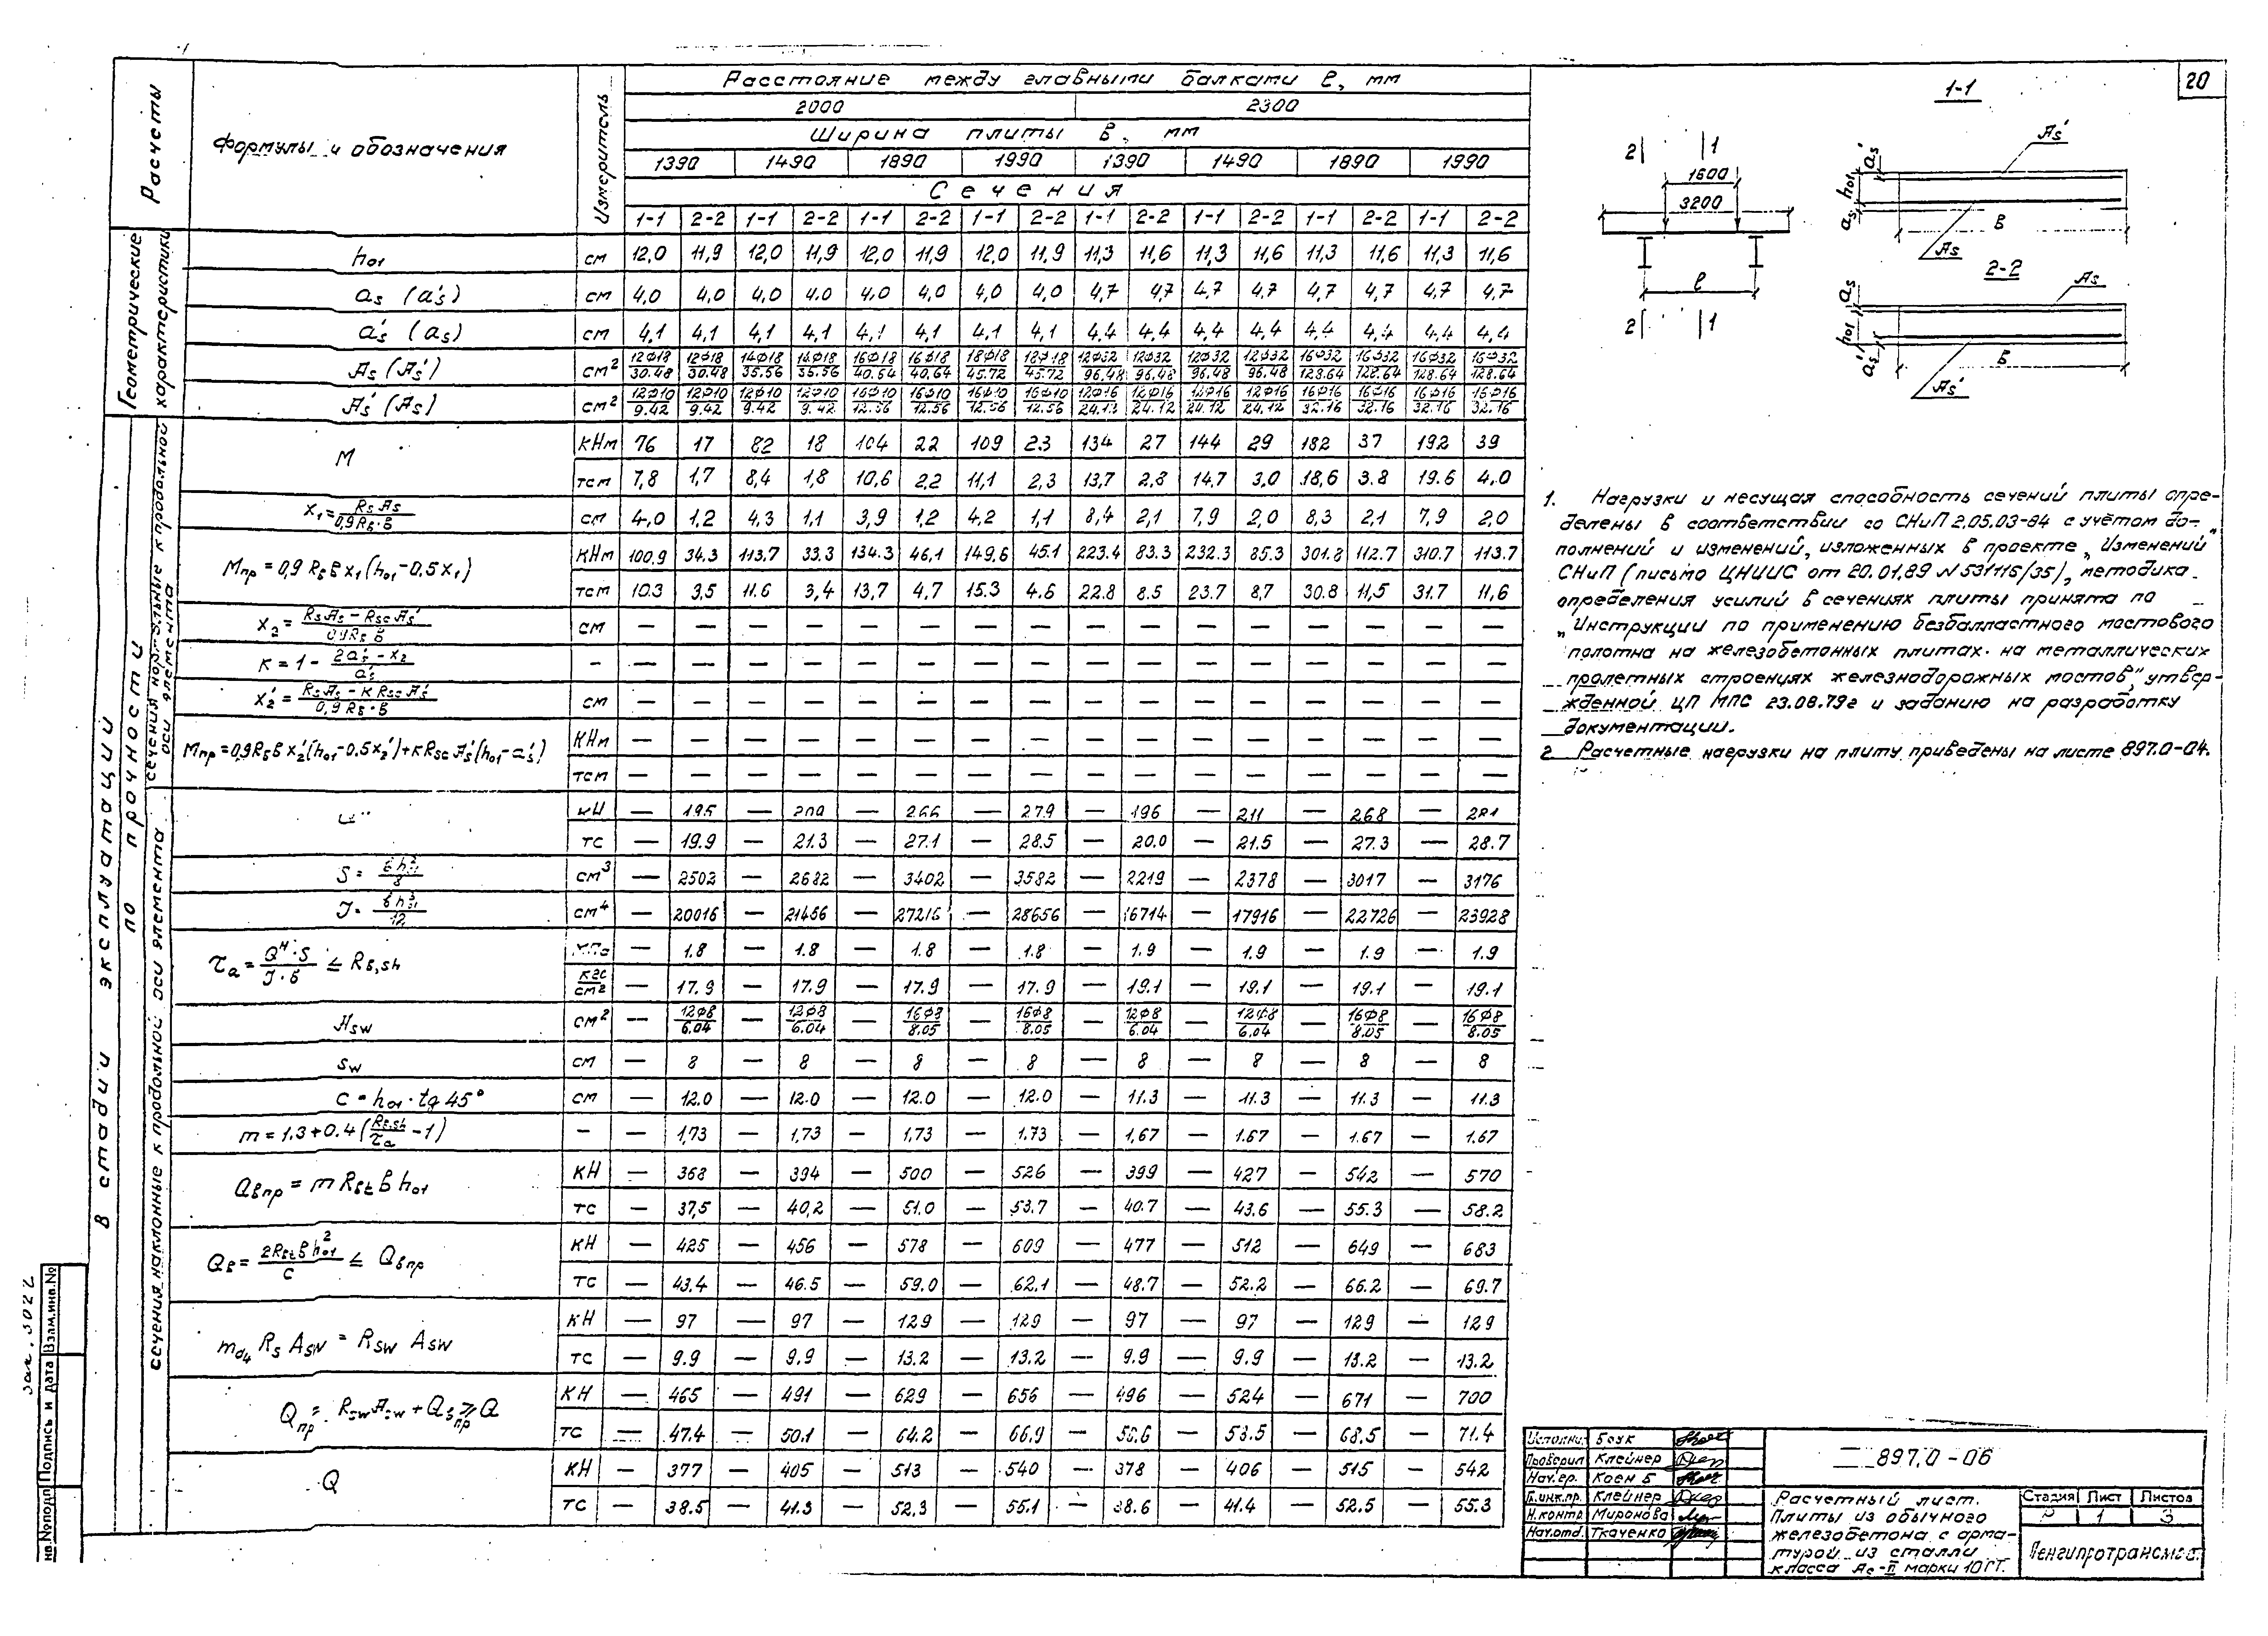 20
Расчеты
Формулы и обозначения
Измеритель
Расстояние между главными балками l, мм
2000 2300
Ширина плиты в, мм
1390 1490 1890 1990 1390 1490 1890 1990
Сечения
1-1 2-2 1-1 2-2 1-1 2-2 1-1 2-2 1-1 2-2 1-1 2-2 1-1 2-2 1-1 2-2
Геометрические характеристики
h01 см 12,0 11,9 12,0 11,9 12,0 11,9 12,0 11,9 11,3 11,6 11,3 11,6 11,3 11,6 11,3 11,6
as (a's) см 4,0 4,0 4,0 4,0 4,0 4,0 4,0 4,0 4,7 4,7 4,7 4,7 4,7 4,7 4,7 4,7
a's (as) см 4,1 4,1 4,1 4,1 4,1 4,1 4,1 4,1 4,4 4,4 4,4 4,4 4,4 4,4 4,4 4,4
As (A's) см² 12ø18 12ø18 14ø18 14ø18 16ø18 16ø18 18ø18 12ø32 12ø32 12ø32 12ø32 16ø32 16ø32 16ø32 16ø32
30.48 30.48 35.56 35.56 40.64 40,64 45.72 45.72 96.48 96.48 96.48 96.48 128.64 128.64 128.64 128.64
A's (As) см² 12ø10 12ø10 12ø10 12ø10 16ø10 16ø10 16ø10 16ø10 12ø16 12ø16 12ø16 12ø16 16ø16 16ø16 16ø16 16ø16
9.42 9.42 9.42 9.42 12.56 12.56 12.56 12.56 24.12 24.12 24.12 32.16 32.16 32.16 32.16
В стадии эксплуатации
по прочности
сечения нормальные к продольной оси элемента
M кНм 76 17 82 18 104 22 109 23 134 27 144 29 182 37 192 39
тсм 7,8 1,7 8,4 1,8 10,6 2,2 11,1 2,3 13,7 2,8 14.7 3,0 18,6 3.8 19.6 4,0
x1 = Rs As / 0,9Rв·в см 4,0 1,2 4,3 1,1 3,9 1,2 4,2 1,1 8,4 2,1 7,9 2,0 8,3 2,1 7,9 2,0
Mпр = 0,9 Rв в x1 (h01 - 0,5x1) кНм 100.9 34.3 113.7 33.3 134.3 46,1 149,6 45.1 223.4 83.3 232.3 85.3 301.8 112.7 310.7 113.7
тсм 10.3 3,5 11.6 3,4 13,7 4,7 15.3 4.6 22.8 8.5 23.7 8,7 30.8 11,5 31.7 11,6
x2 = Rs As - Rsc A's / 0,9Rв в см — — — — — — — — — — — — — — — —
к = 1 - 2a's - x2 / a's - — — — — — — — — — — — — — — — —
x'2 = Rs As - к Rsc A's / 0,9 Rв·в см — — — — — — — — — — — — — — — —
Mпр = 0,9Rв в x'2 (h01 - 0,5x'2) + к Rsc A's (h01 - a's) кНм — — — — — — — — — — — — — — — —
тсм — — — — — — — — — — — — — — — —
сечения наклонные к продольной оси элемента
кН — 195 — — 266 — 279 — 196 — 211 — 268 — 281
тс — 19.9 — 21.3 — 27.1 — 28.5 — 20.0 — 21.5 — 27.3 — 28.7
S = в h²01 / 8 см³ — 2502 — 2682 — 3402 — 3582 — 2219 — 2378 — 3017 — 3176
J = в h³01 / 12 см⁴ — 20016 — 21456 — 27216 — 28656 — 16714 — 17916 — 22726 — 23928
τa = Qᴴ·S / J·в ≤ Rв,sh МПа — 1.8 — 1.8 — 1.8 — 1.8 — 1.9 — 1.9 — 1.9 — 1.9
кгс/см² — 17.9 — 17.9 — 17.9 — 17.9 — 19.1 — 19.1 — 19.1 — 19.1
Asw см² — 12ø8 — 12ø8 — 16ø8 — 16ø8 — 12ø8 — 12ø8 — 16ø8 — 16ø8
6.04 6.04 8.05 8.05 6.04 6.04 8.05 8.05
Sw см — 8 — 8 — 8 — 8 — 8 — 8 — 8 — 8
c = h01·tg 45° см — 12.0 — 12.0 — 12.0 — 12.0 — 11.3 — 11.3 — 11.3 — 11.3
m = 1.3+0.4 (Rв,sh / τa - 1) - — 1,73 — 1,73 — 1,73 — 1.73 — 1,67 — 1.67 — 1.67 — 1.67
Qвпр = m Rвt в h01 кН — 368 — 394 — 500 — 526 — 399 — 427 — 542 — 570
тс — 37,5 — 40,2 — 51.0 — 53.7 — 40.7 — 43.6 — 55.3 — 58.2
Qв = 2Rвt в h²01 / c ≤ Qвпр кН — 425 — 456 — 578 — 609 — 477 — 512 — 649 — 683
тс — 43.4 — 46.5 — 59.0 — 62.1 — 48.7 — 52.2 — 66.2 — 69.7
ma4 Rs Asw = Rsw Asw кН — 97 — 97 — 129 — 129 — 97 — 97 — 129 — 129
тс — 9.9 — 9.9 — 13.2 — 13.2 — 9.9 — 9.9 — 13.2 — 13.2
Qпр = Rsw Asw + Qвпр ≥ Q кН — 465 — 491 — 629 — 656 — 496 — 524 — 671 — 700
тс — 47.4 — 50.1 — 64.2 — 66.9 — 50.6 — 53.5 — 68,5 — 71.4
Q кН — 377 — 405 — 513 — 540 — 378 — 406 — 515 — 542
тс — 38.5 — 41.3 — 52,3 — 55.1 — 38.6 — 41.4 — 52.5 — 55.3
2 1
1600
3200
l
2 1
1-1
A's
a's
h01
as
в
As
2-2
as
As
h01
a's
в
A's
1. Нагрузки и несущая способность сечений плиты опре-
делены в соответствии со СНиП 2.05.03-84 с учётом до-
полнений и изменений, изложенных в проекте „Изменений"
СНиП (письмо ЦНИИС от 20.01.89 N 531115/35), методика
определения усилий в сечениях плиты принята по
„Инструкции по применению безбалластного мостового
полотна на железобетонных плитах на металлических
пролетных строениях железнодорожных мостов", утвер-
жденной ЦП МПС 23.08.79г и заданию на разработку
документации.
2 Расчетные нагрузки на плиту приведены на листе 897.0-04.
Исполни. Боук
Проверил Клейнер
Нач.гр. Коен Б
Гл.инж.пр. Клейнер
Н.контр. Миронова
Нач.отд. Ткаченко
897.0-06
Расчетный лист.
Плиты из обычного
железобетона с арма-
турой из стали
класса Ас-II марки 10ГТ.
Стадия Лист Листов
Р 1 3
Ленгипротрансмост
Инв.№подл Подпись и дата Взам.инв.№
зак. 5022